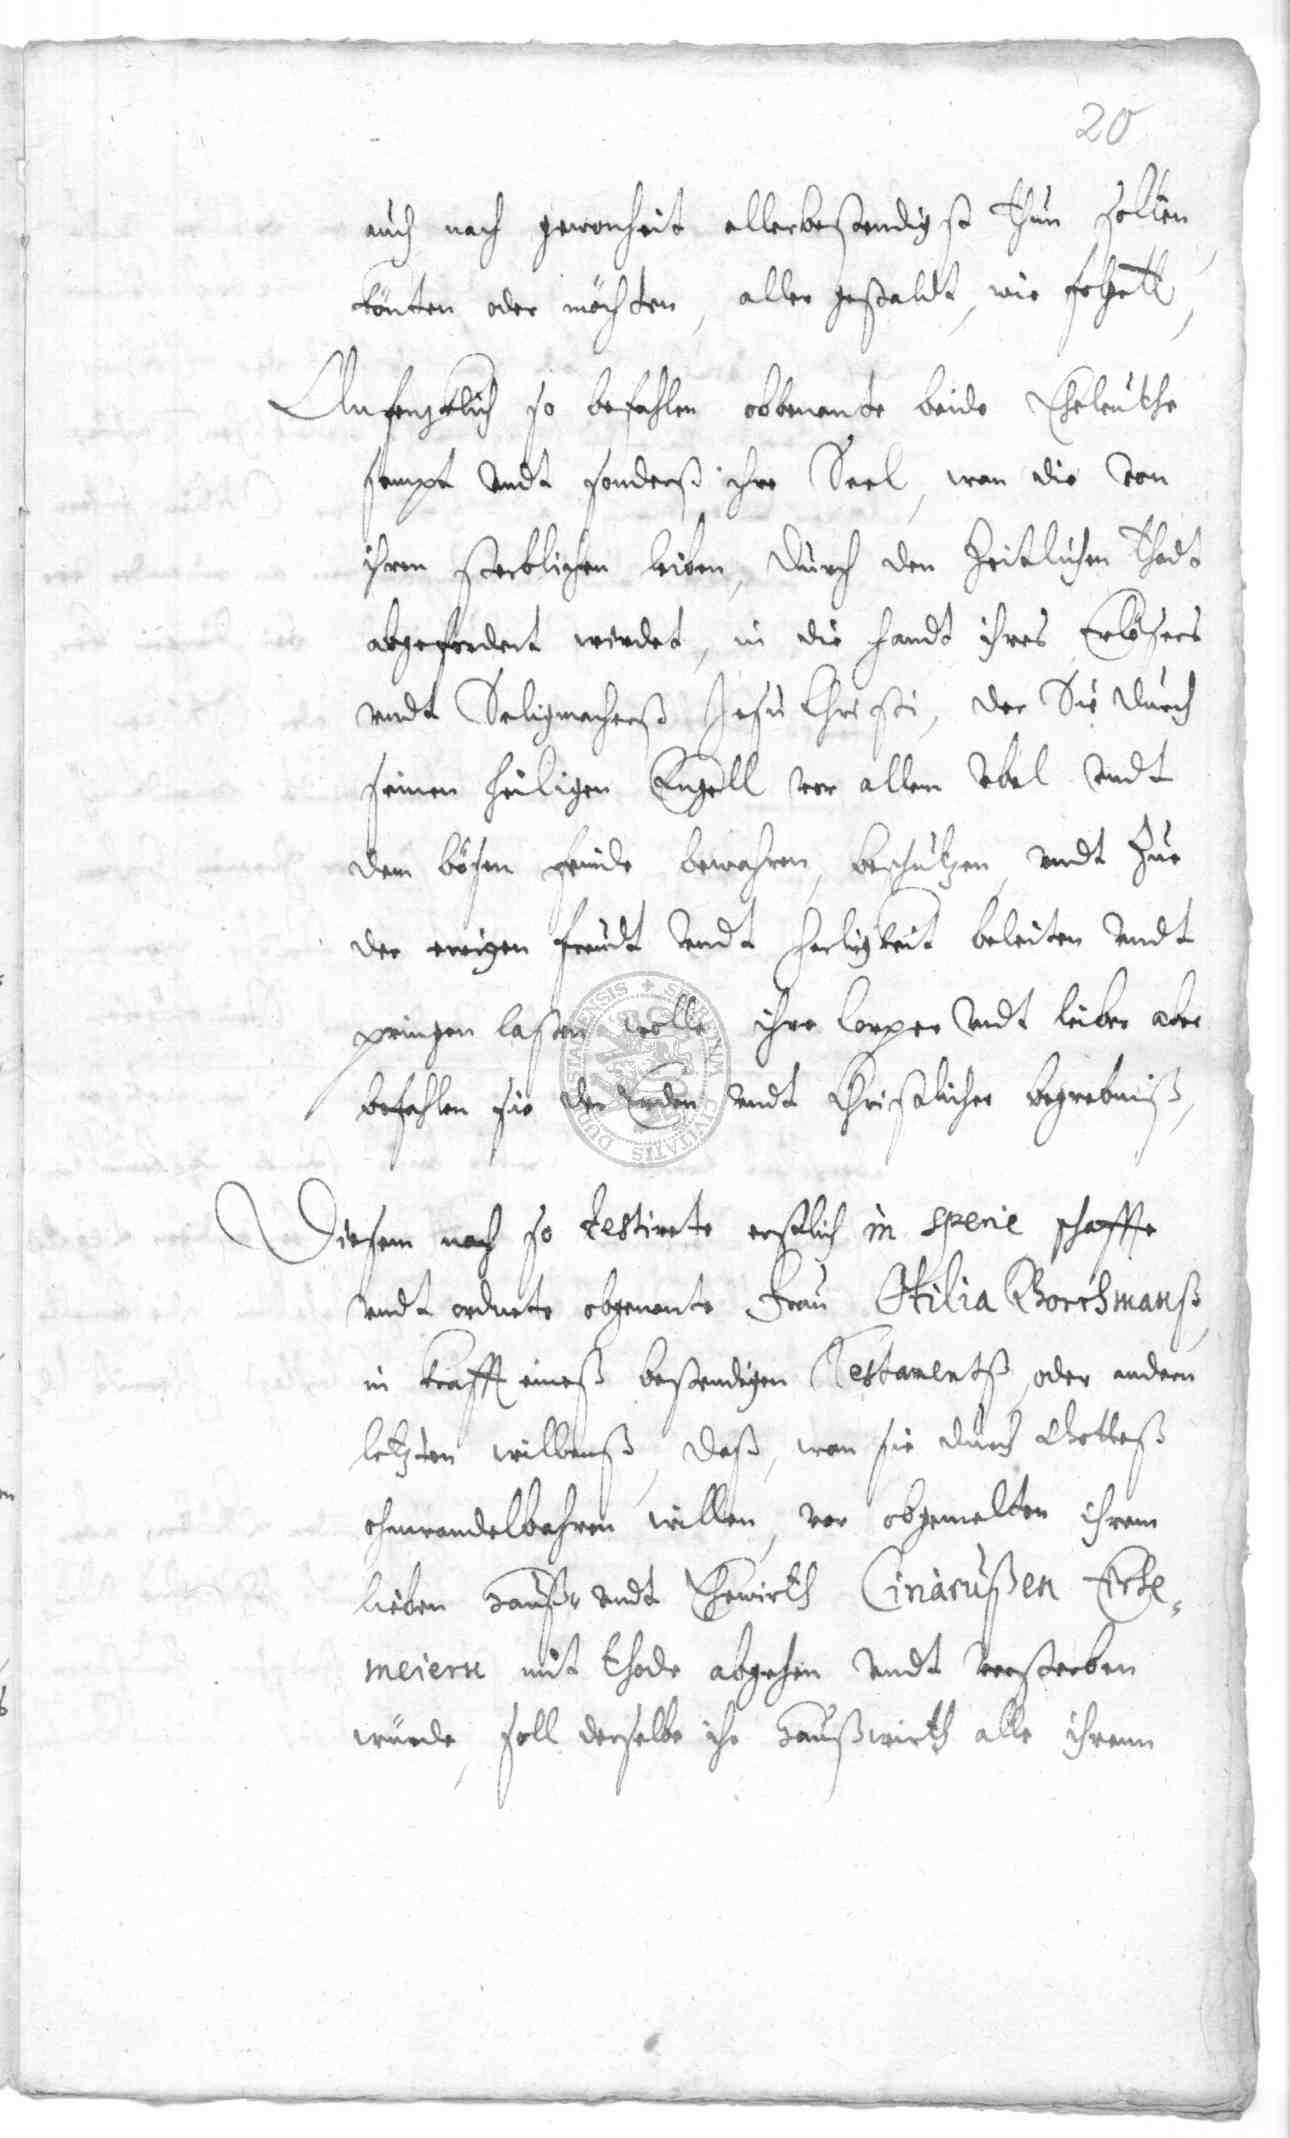 20
auch nach gewonheit allerbestendigst thun solten,
könten oder möchten, aller gestaldt, wie folgett,
Anfengklich so befahlen obbenante beide Eheleuthe
sampt vndt sonderß ihre Seel, wan die von
ihren sterblichen leiben, durch den Zeitlichen Thodt
abgefordert würdet, in die handt ihres Erlösers
vndt Seligmacherß Jesu Christi, der Sie durch
seinen heiligen Engell vor allem vbel vndt
dem bösen feinde bewahren, beschützen, vndt Zue
der ewigen freudt vndt herligkeit beleiten vndt
pringen lassen wolle, ihre Corper vndt leiber aber
befahlen sie der Erden vndt Christlicher begrebniß,
Diesem nach so testirete erstlich in specie schaffte
vndt ordnete obgenante Frau Otilia Borchmanß,
in krafft eineß bestendigen Testamentß, oder andern
letzten willenß, daß, wan sie durch Gotteß
ohnwandelbahren willen, vor obgemelten ihrem
lieben Hauß= vndt Ehewirth Ciriacußen Ecke=
meiern mit thode abgehen vndt versterben
würde, soll derselbe ihr Haußwirth alle ihrenn
SIGILLUM CIVITATIS DUDERSTADENSIS